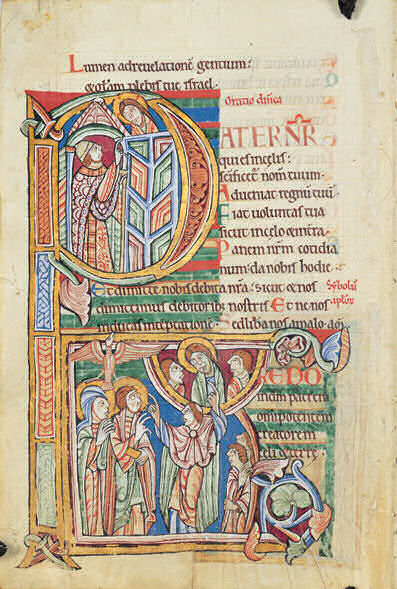 Lumen ad revelationē gentium:
& gloriam plebis tuę israel.
Oratio dn̄ica
PATER NR̄
qui es in celis:
sc̄ificet᷑ nom̄ tuum·
Adveniat regnū tuū·
Fiat voluntas tua
sicut in celo & in tr̄a·
Panem nr̄m cotidia
num· da nobis hodie·
Et dimitte nobis debita nr̄a· sicut & nos
dimittimus debitoribus nostris· Et ne nos
Sỹbolū
aplōꝝ
inducas in temptatione· Sed libā nos a malo·
CREDO
in dm̄ patrem
omnipotentem
creatorem
celi & terre·